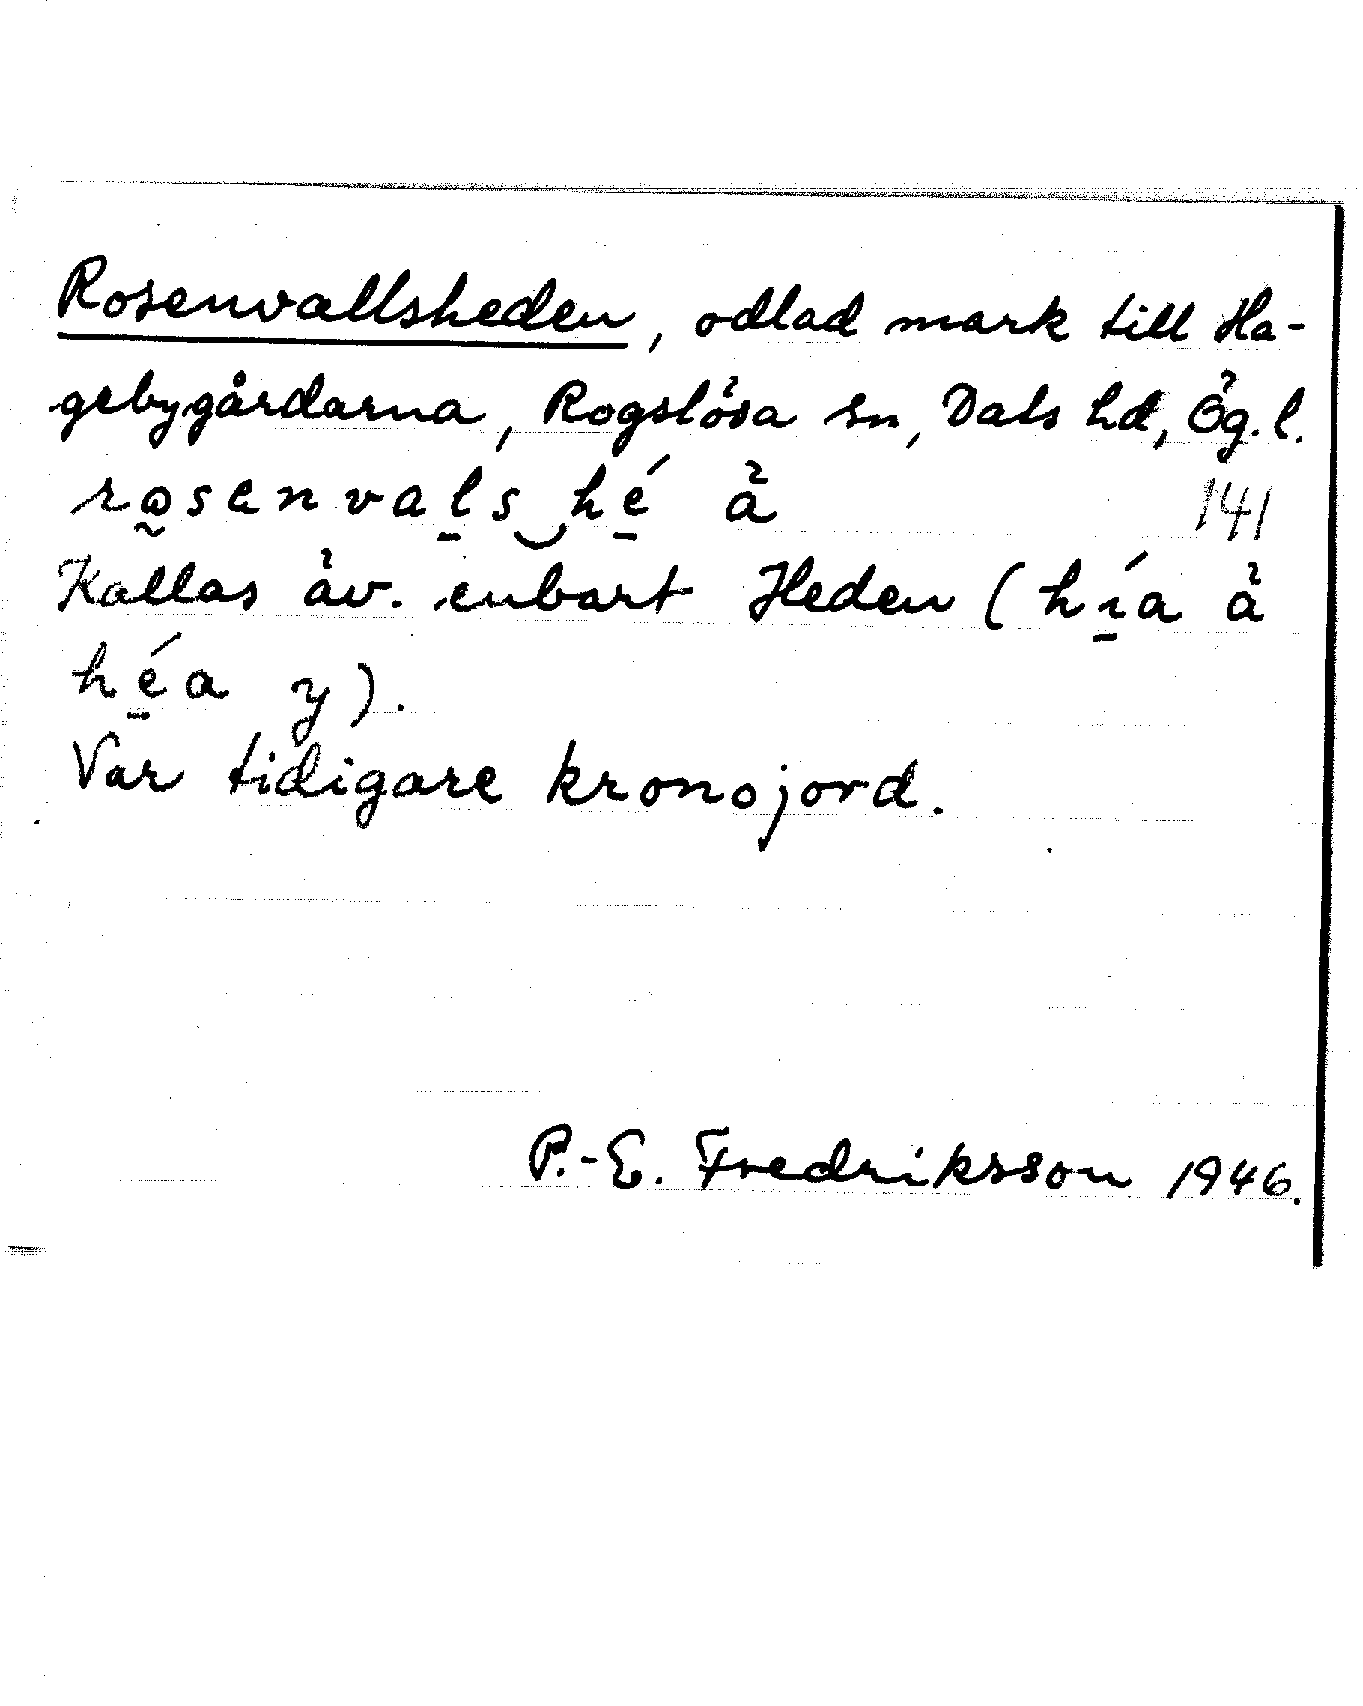 Rosenvallsheden, odlad mark till Ha-
gebygårdarna, Rogslösa sn, Dals hd, Ög.l.
rꙍ̰senval̲s‿hé̲ ä
141
Kallas äv. enbart Heden (hí̲a ä
hé̲a y).
Var tidigare kronojord.
P.-E. Fredriksson 1946.